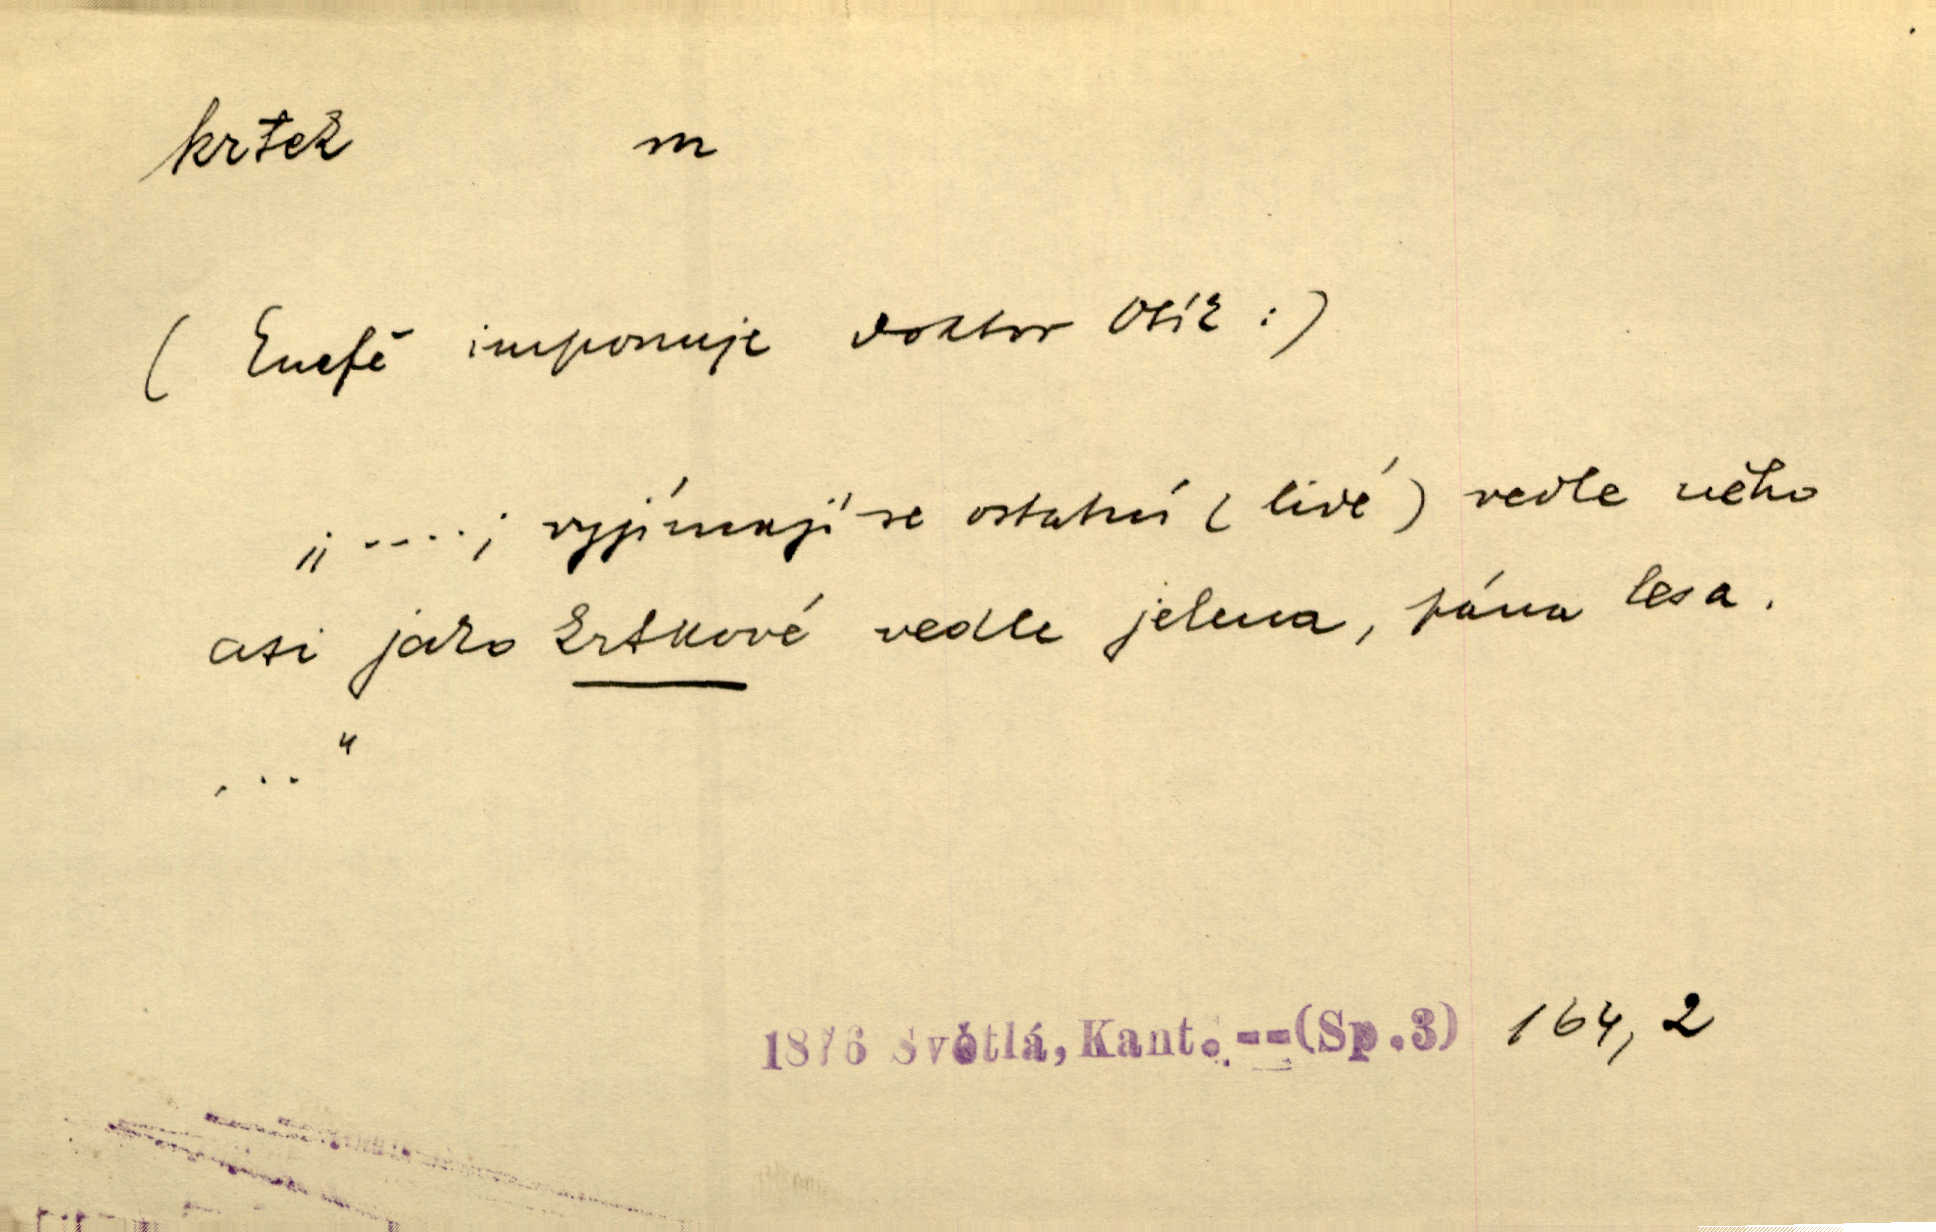 krtek m
( Enefě imponuje doktor Otík :)
„ ---..; vyjímají se ostatní ( lidé ) vedle něho
asi jako krtkové vedle jelena, pána lesa.
... "
1876 Světlá, Kant. --(Sp.3) 164, 2